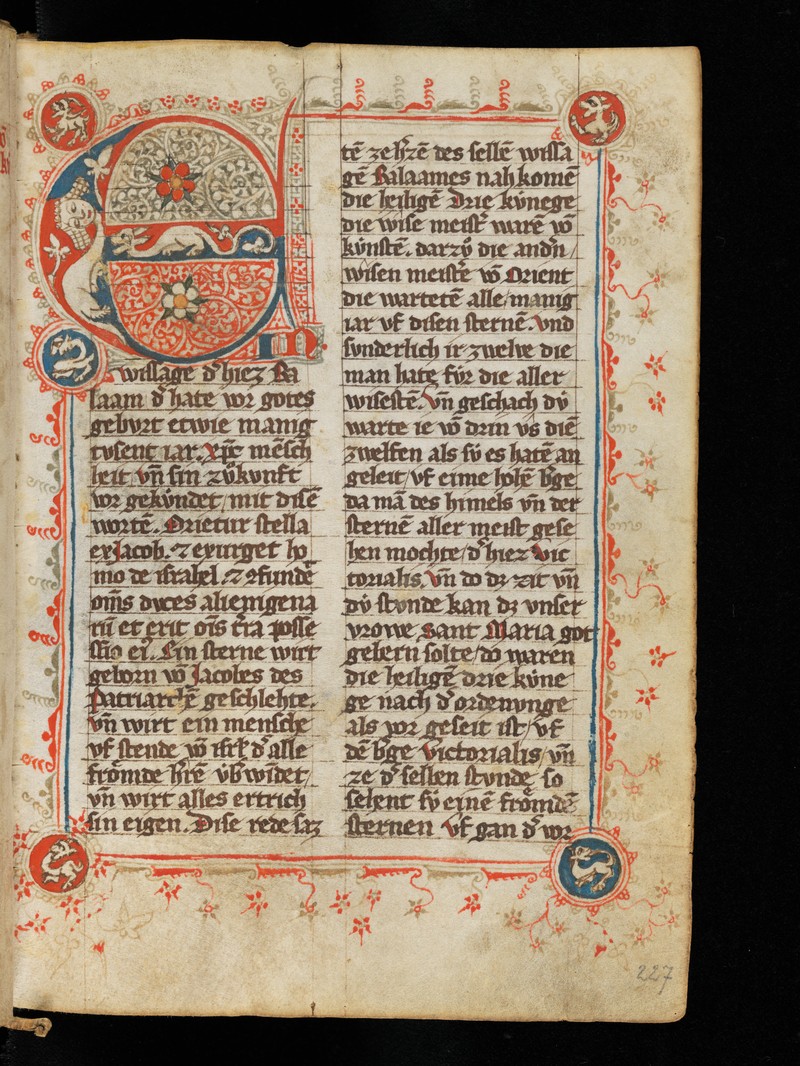 Ein
wissage d' hiez Ba
laam d' hate vor gotes
gebvrt etwie manig
tvsent iar. xp̄c mēsch
heit. vn̄ sin zv̊kvnft
vor gekv́ndet/ mit disē
wortē. Orietur stella
ex Jacob. ⁊ exurget ho
mo de israhel. ⁊ ꝯfundē
om̄s dvces alienigena
rū et erit om̄s t'ra posse
ssio ei'. Ein sterne wirt
geborn vō Jacobes des
Patriarchē geschlehte.
vn̄ wirt ein mensche
vf stende vō isrl' d' alle
frömde h'rē vb'wīdet/
vn̄ wirt alles ertrich
sin eigen. Dise rede saz
tē ze h'rzē des sellē wissa
gē Balaames nah komē
die heiligē Drie kv́nege
die wise meist' warē vō
kv́nstē. darzv̊ die and'n/
wisen meist'e vō Orient
die wartetē alle/ manig
iar vf disen sternē. vnd
svnderlich ir zwelve die
man hate fv́r die aller
wisestē. vn̄ geschach dv́
warte ie vō drin vs diē
zwelfen als sv́ es hatē an
geleit/ vf eime hohē b'ge
da mā des himels vn̄ der
sternē aller meist gese
hen mochte/ d' hiez vic
torialis. vn̄ do dz zit vn̄
dv́ stvnde kan dz vnser
vrowe sant Maria got
gebern solte/ do waren
die heiligē drie kv́ne
ge nach d' ordenvnge
als vor geseit ist/ vf
dē b'ge victorialis/ vn̄
ze d' sellen stvnde/ so
sehent sv́ einē frömdē
sternen vf gan d' vor
227